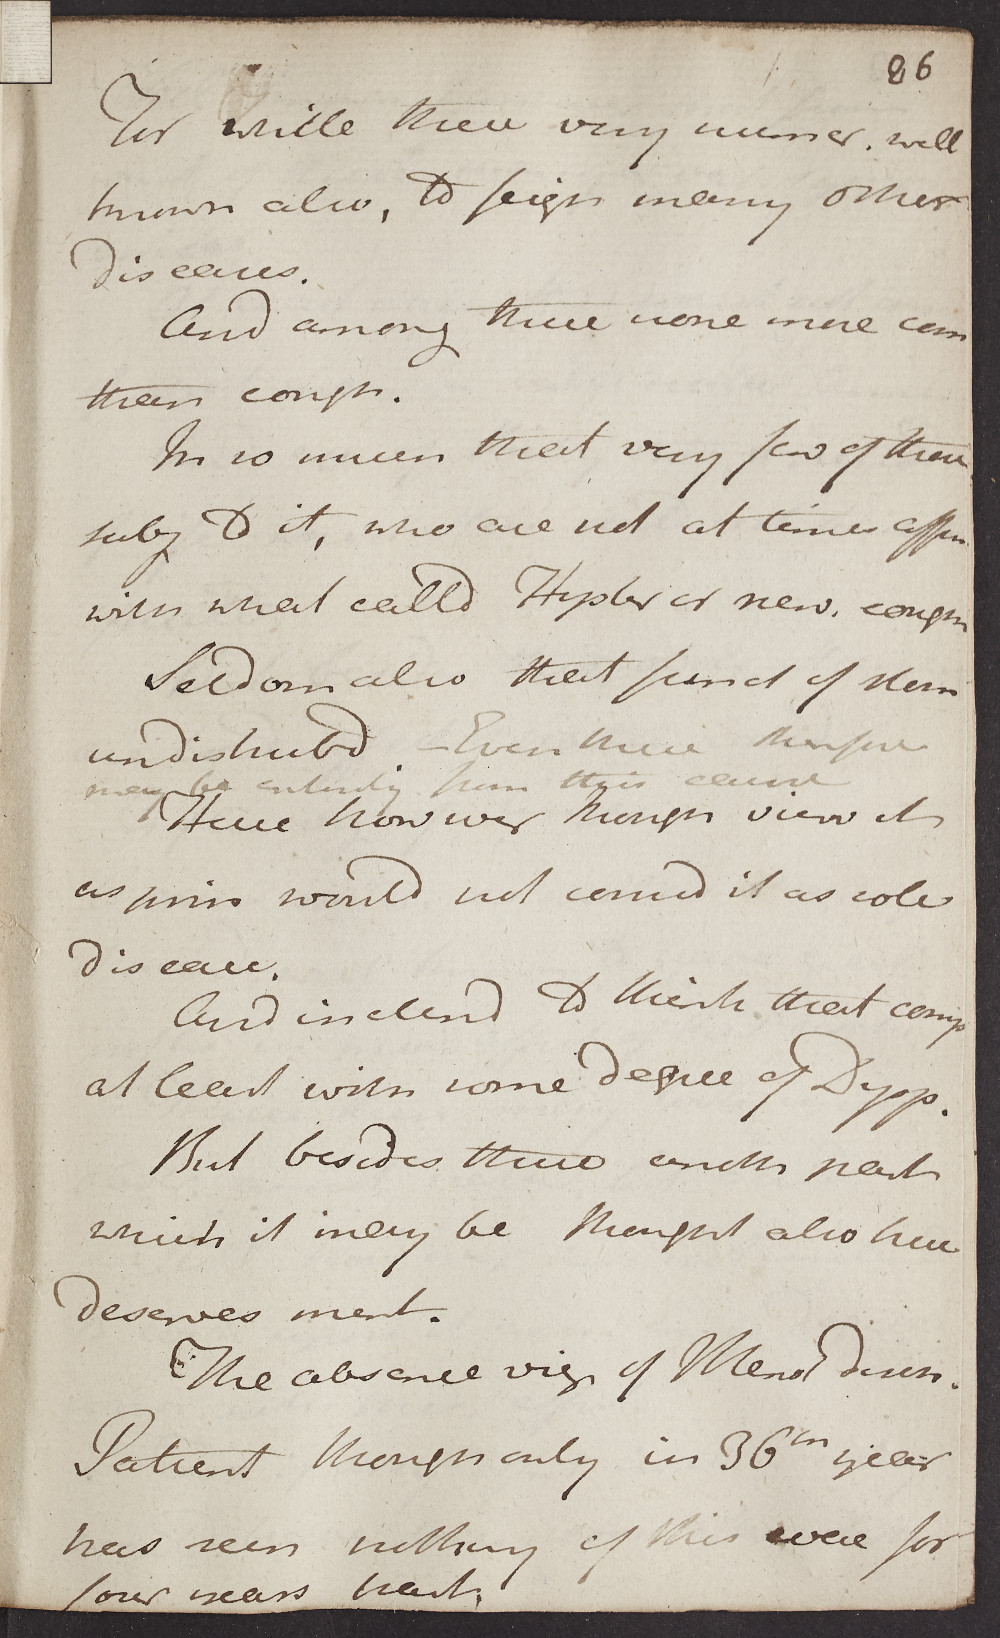 86
For while these very numer. well
known also, to feign many other
diseases.
And among these none more com
than cough.
In so much that very few of those
subj to it, who are not at times affec
with what calld Hyster or nerv. cough
Seldom also that funct of stom
undisturbd - Even these therefore
may be entirely from this cause
Here however though view it
as prim would not consid it as sole
disease.
And inclend to think that comp
at least with some degree of Dysp.
But besides these anoth part
which it may be thought also here
deserves ment.
The absence viz. of Menst disch.
Patient though only in 36th year
has seen nothing of this sore for
four years past.